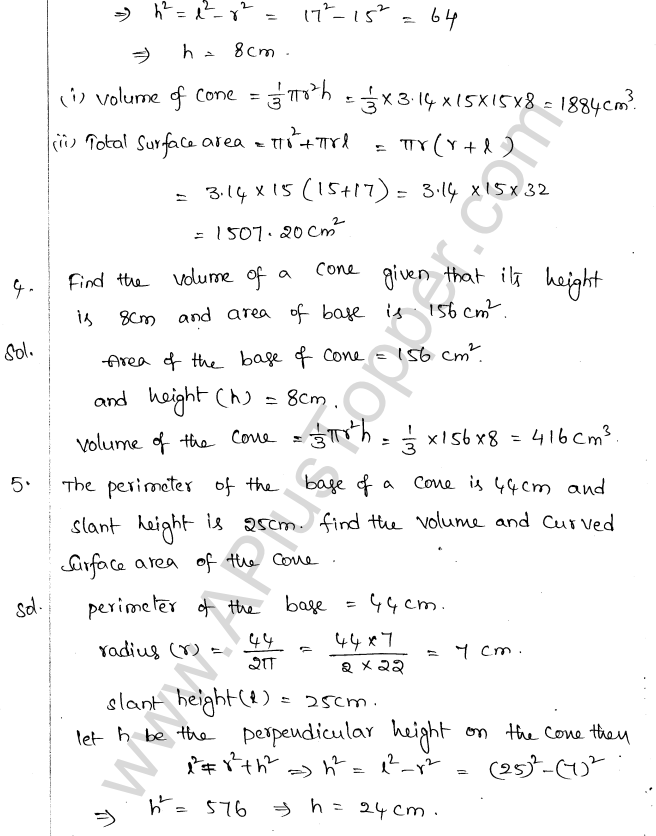 ⇒ h² = l² - r² = 17² - 15² = 64
⇒ h = 8cm.
(i) Volume of cone = 1/3 πr²h = 1/3 × 3.14 × 15 × 15 × 8 = 1884cm³.
(ii) Total Surface area = πr² + πrl = πr(r + l)
= 3.14 × 15 (15+17) = 3.14 × 15 × 32
= 1507.20 cm²
4. Find the volume of a cone given that its height
is 8cm and area of base is 156 cm².
Sol. Area of the base of cone = 156 cm².
and height (h) = 8cm.
Volume of the cone = 1/3 πr²h = 1/3 × 156 × 8 = 416 cm³.
5. The perimeter of the base of a cone is 44cm and
slant height is 25cm. find the volume and curved
surface area of the cone.
Sol. perimeter of the base = 44cm.
radius (r) = 44/2π = 44 × 7/2 × 22 = 7 cm.
slant height (l) = 25cm.
let h be the perpendicular height on the cone then
l² = r² + h² ⇒ h² = l² - r² = (25)² - (7)²
⇒ h² = 576 ⇒ h = 24cm.
www.APlusTopper.com